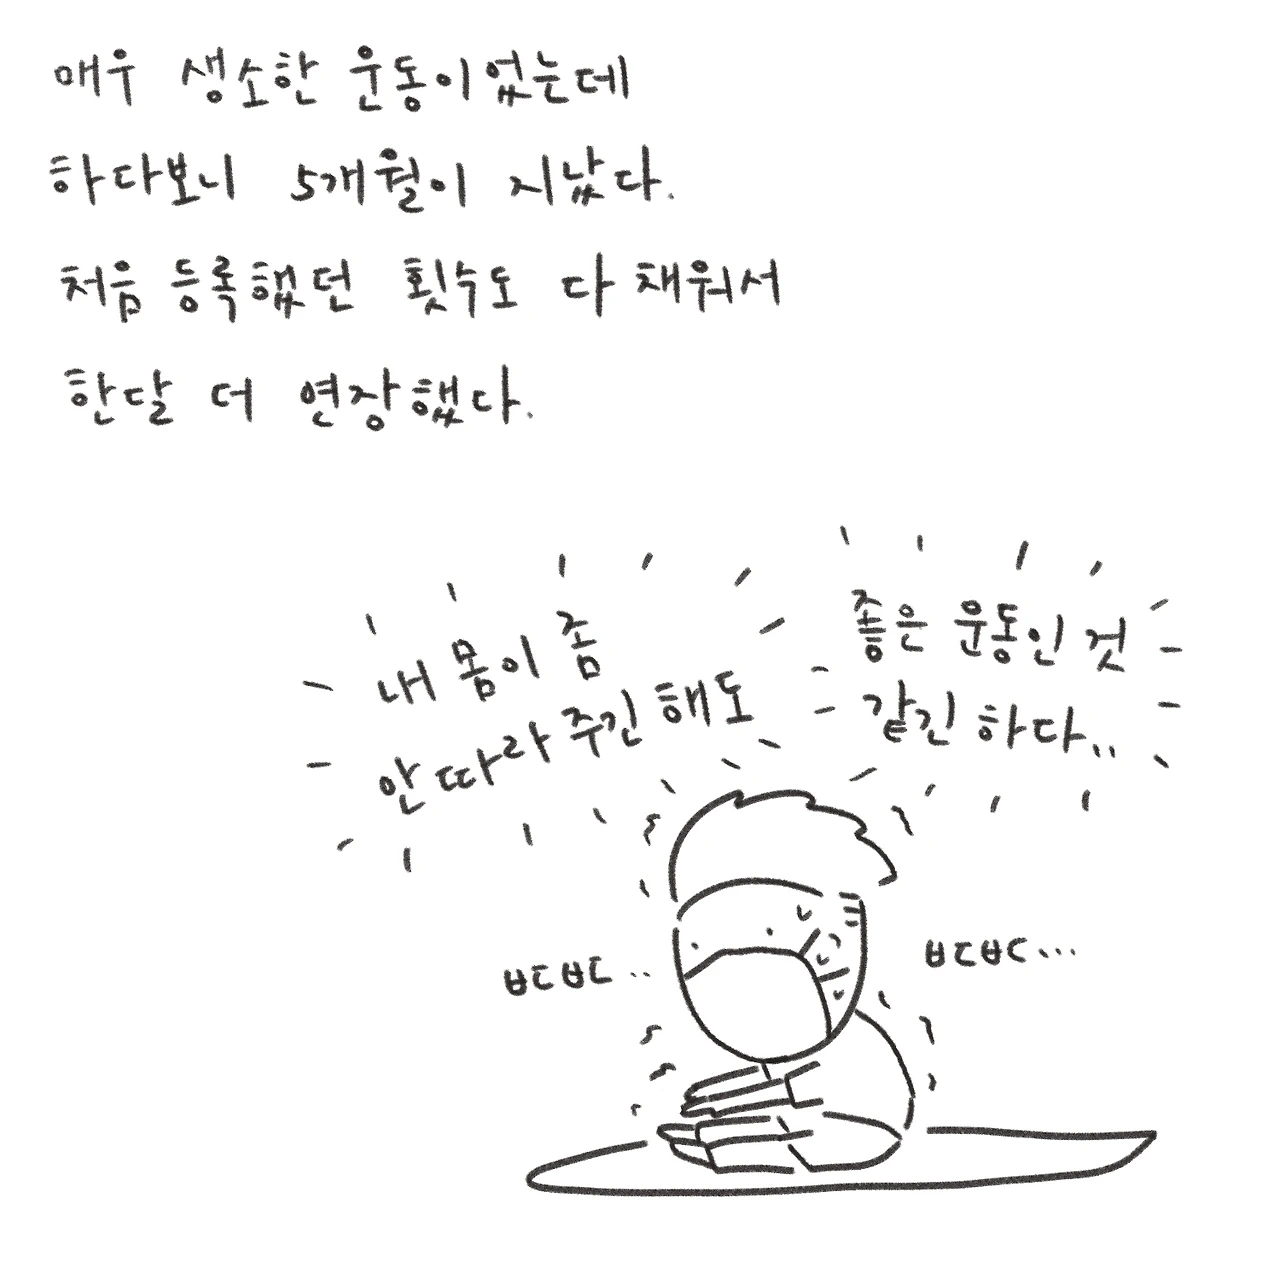 매우 생소한 운동이었는데
하다보니 5개월이 지났다.
처음 등록했던 횟수도 다 채워서
한달 더 연장했다.
내 몸이 좀
안 따라 주긴 해도
좋은 운동인 것
같긴 하다..
ㅂㄷㅂㄷ..
ㅂㄷㅂㄷ...